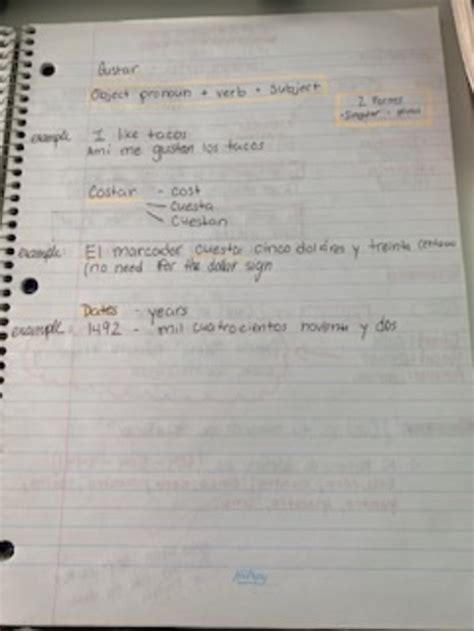 Gustar
Object pronoun + verb + Subject
2 Forms
• Singular - plural
example I like tacos
Ami me gustan los tacos
Costar - cost
- cuesta
- Cuestan
example: El marcador cuesta cinco dolares y treinta centavos
(no need for the dollar sign
Dates - years
example: 1492 - mil cuatrocientos noventa y dos